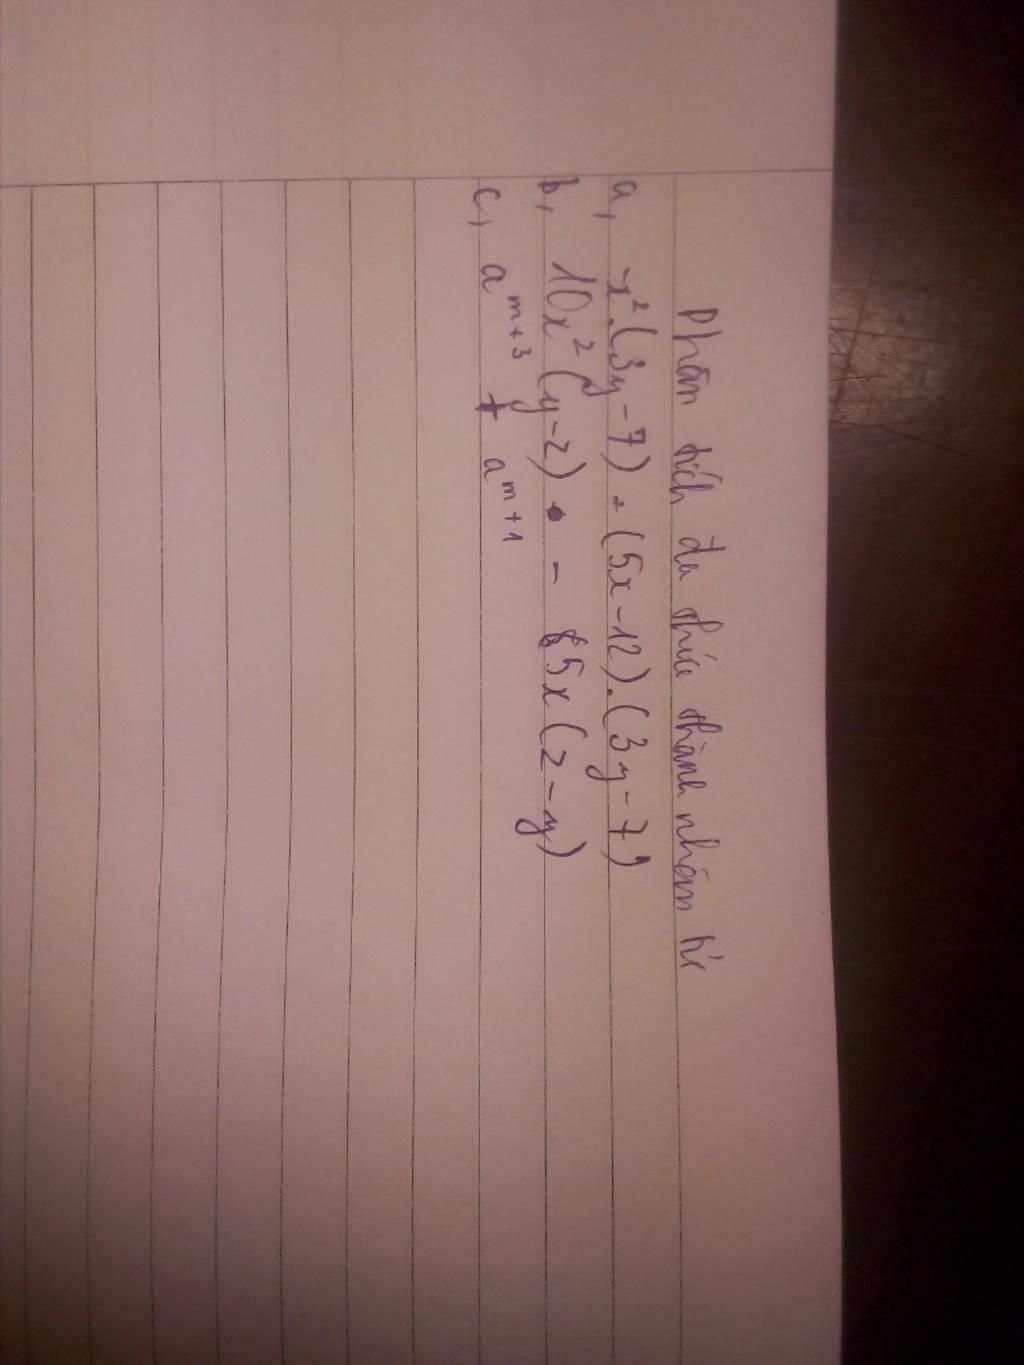 Phân tích đa thức thành nhân tử
a, x².(3y-7) + (5x-12).(3y-7)
b, 10x²(y-2) - 5x(2-y)
c, a^{m+3} + a^{m+1}